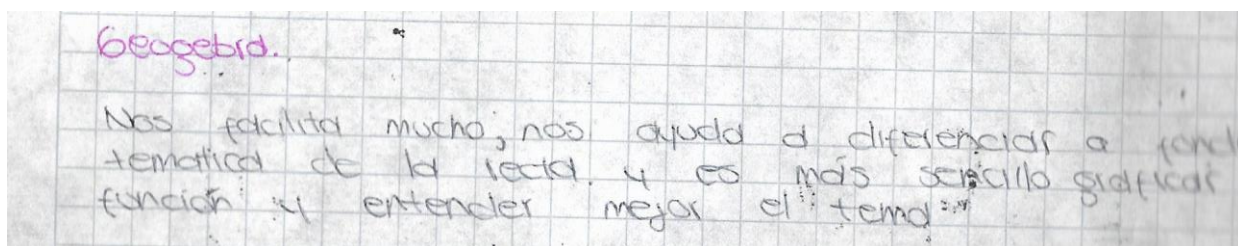 Geogebra.
Nos facilita mucho; nos ayuda a diferenciar a fond
tematica de la recta. y es más sencillo graficar
función y entender mejor el tema